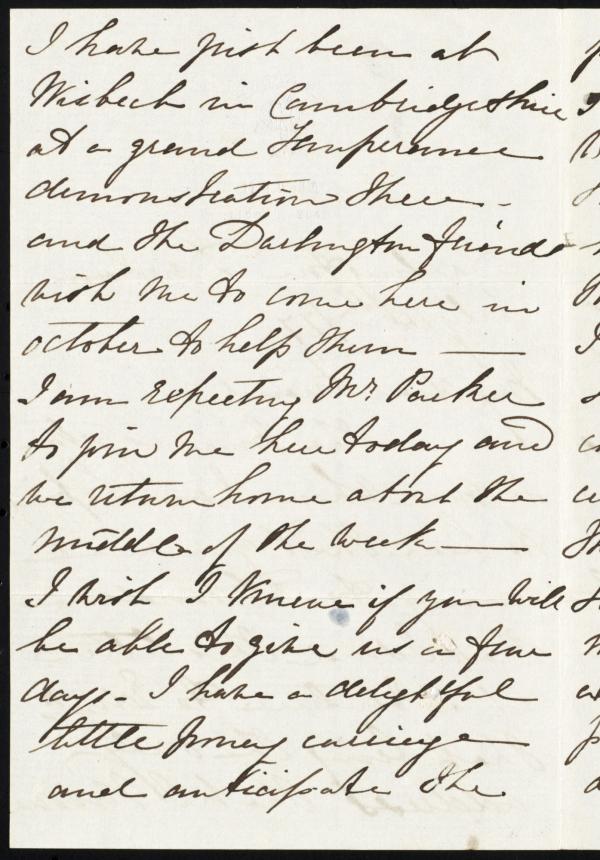 I have just been at
Wisbech in Cambridgeshire
at a grand Temperance
demonstration there -
and the Darlington friends
wish me to come here in
October to help them —
I am expecting Mr. Parker
to join me here today and
we return home about the
middle of the week —
I wish I knew if you will
be able to give us a few
days - I have a delightful
little pony carriage
and anticipate the